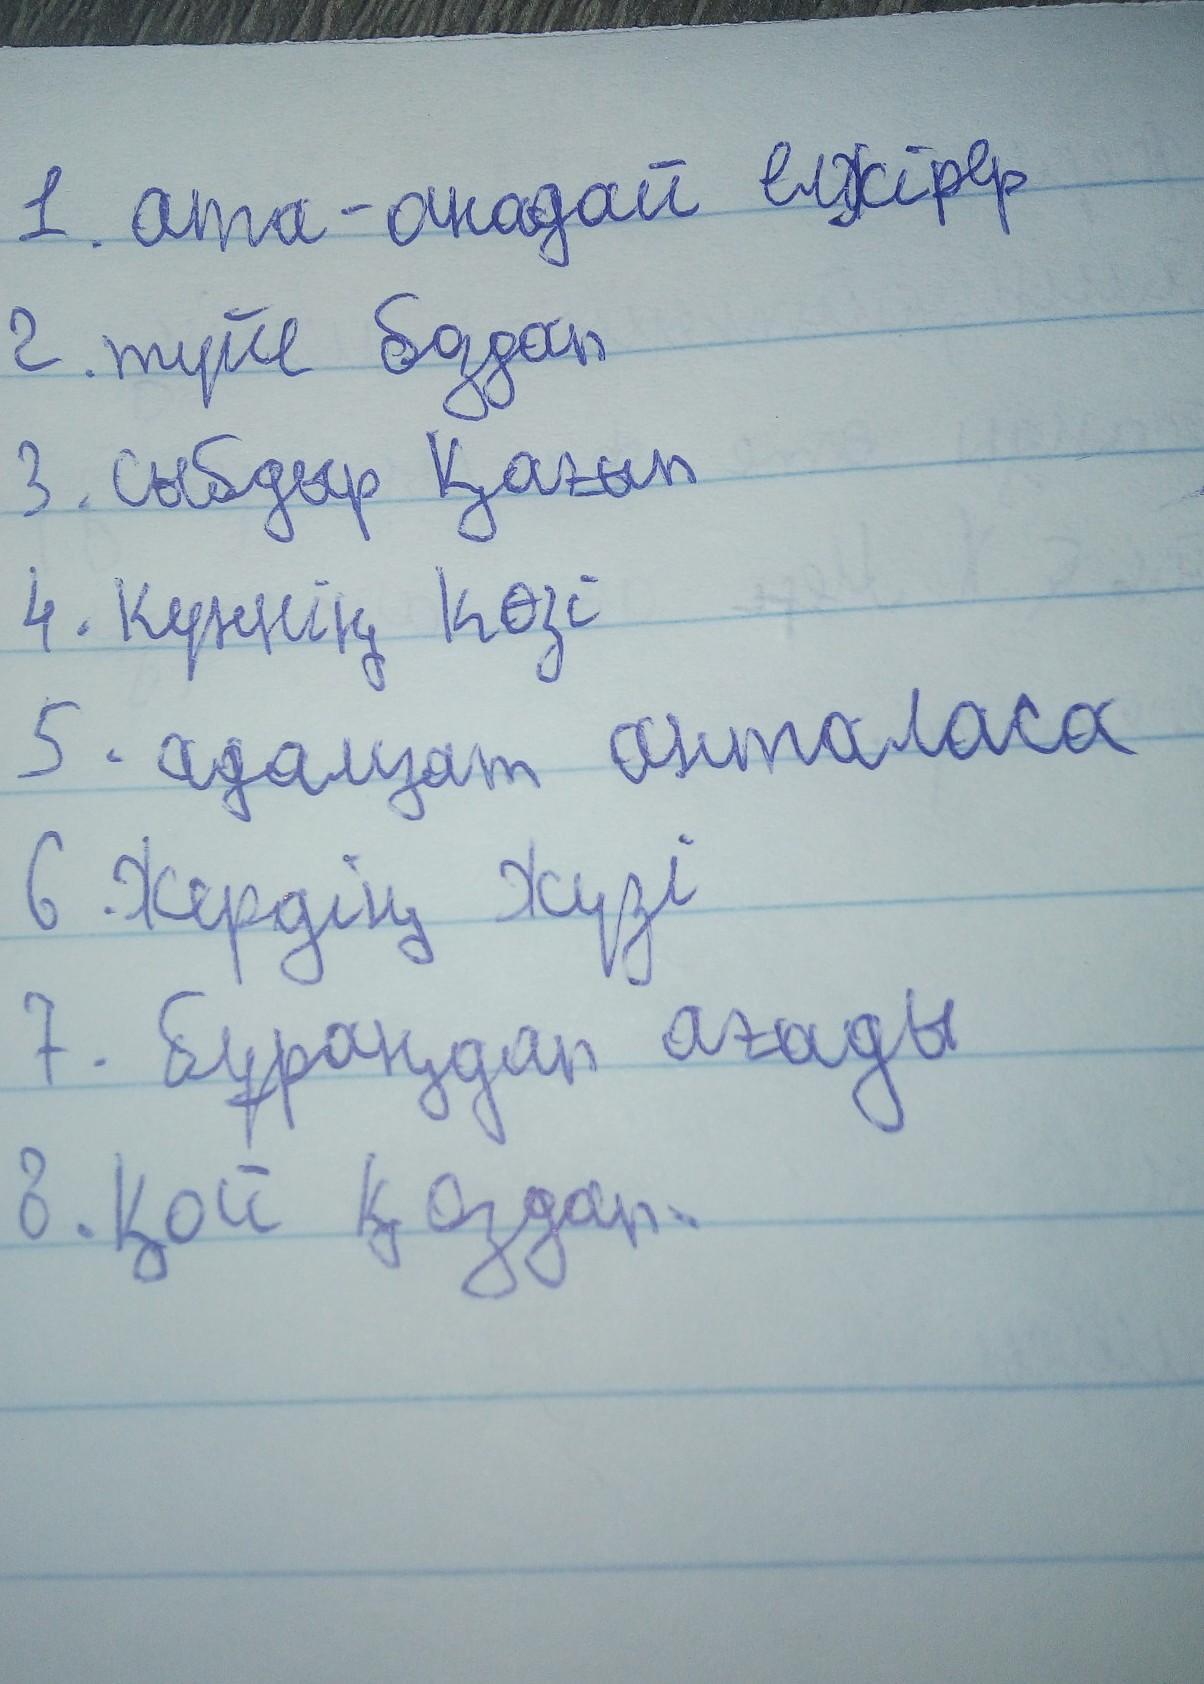 1. ата-анадай елжірер
2. түйе боздап
3. сыбдыр қағып
4. Күннің көзі
5. адамзат анталаса
6. Жердің жүзі
7. бұраңдап ағады
8. қой қоздап.